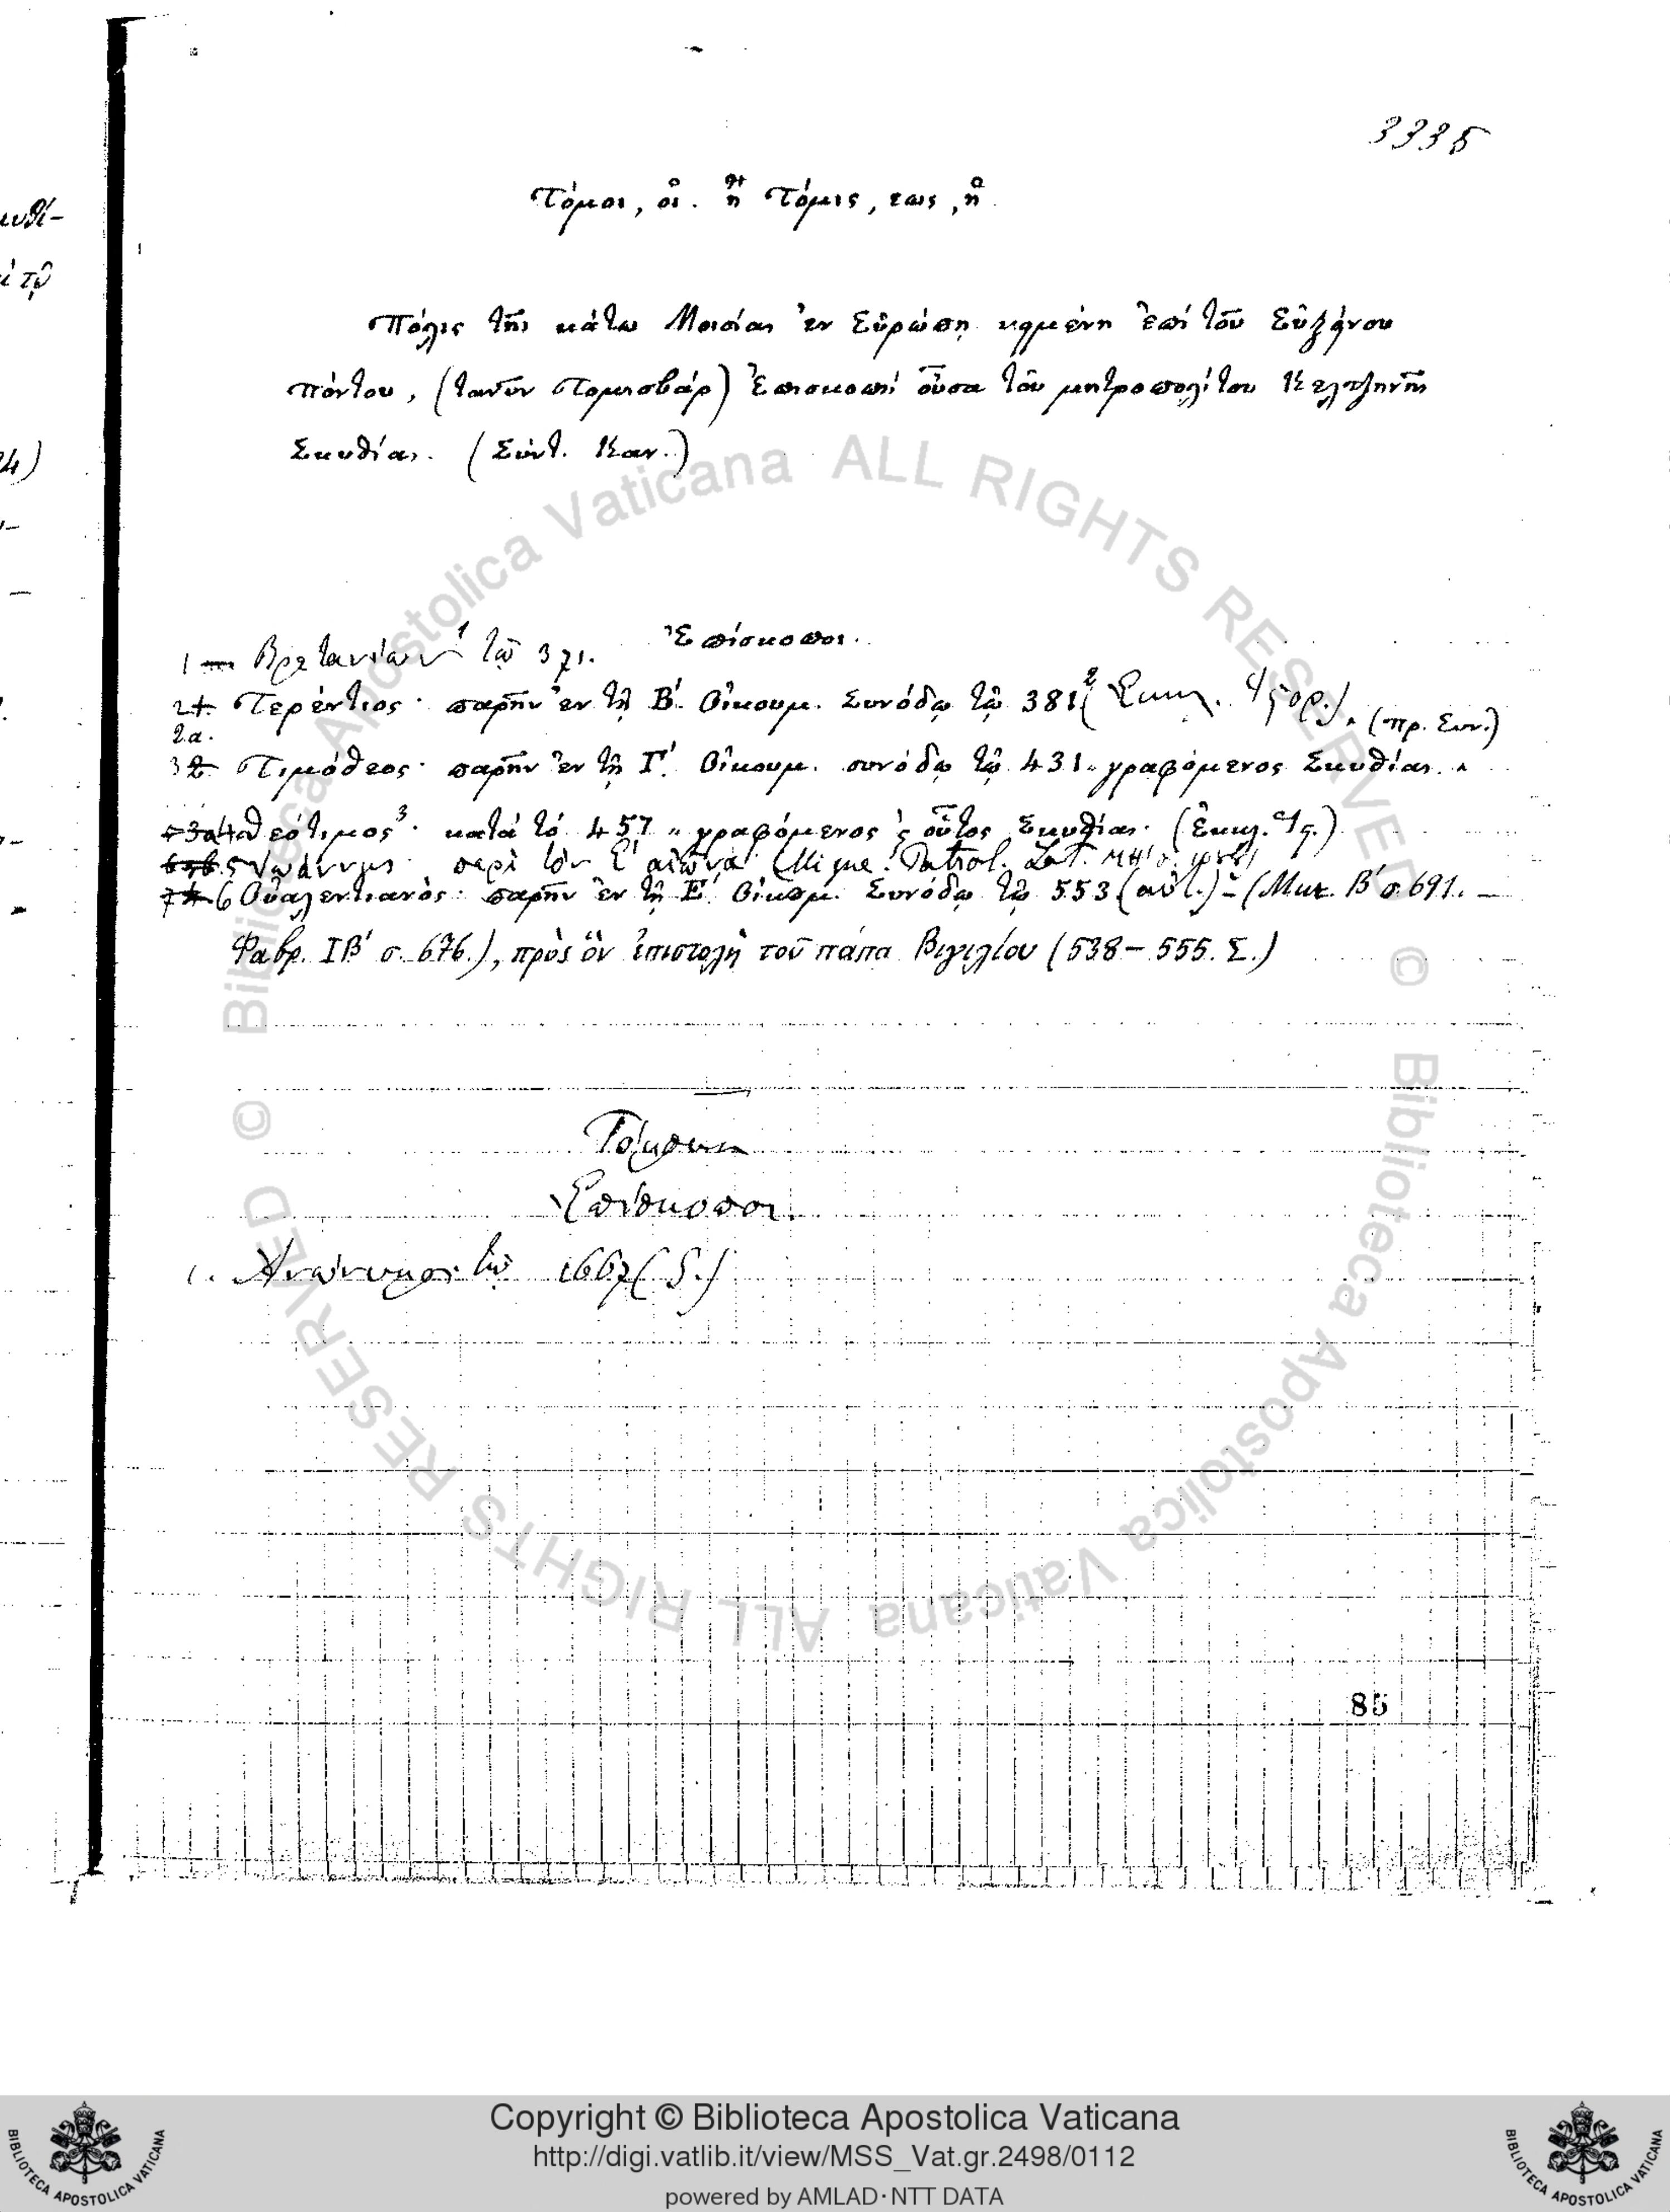 3335
Τόμοι, οἱ. ἢ Τόμις, εως, ἡ.
Πόλις τῆς κάτω Μοισίας ἐν Εὐρώπῃ κειμένη ἐπί τοῦ Εὐξείνου
πόντου, (τανῦν Τομισβάρ) Ἐπισκοπή οὖσα τοῦ μητροπολίτου
Σκυθίας. (Σύντ. Καν.)
Ἐπίσκοποι.
1 Βρετανίων¹ τῷ 371.
2 Τερέντιος· παρῆν ἐν τῇ Β΄. Οἰκουμ. Συνόδῳ τῷ 381² (πρ. Συν.)
2α.
3 Τιμόθεος· παρῆν ἐν τῇ Γ΄. Οἰκουμ. συνόδῳ τῷ 431 „ γραφόμενος Σκυθίας.
4 Θεότιμος³· κατά τό 457 „ γραφόμενος ϛ οὗτος Σκυθίας. (Ἐκκλ.
5 Ἰωάννης· περὶ τὸν Ε΄ αἰῶνα (Migne. Patrol. Lat. ΜΗ΄ σ.
6 Οὐαλεντιανὸς· παρῆν ἐν τῇ Ε΄. Οἰκουμ. Συνόδῳ τῷ 553 (αὐτ.) – (Μικ. Β΄ σ. 691. –
Φαβρ. ΙΒ΄ σ. 676.), πρὸς ὃν ἐπιστολὴ τοῦ πάπα Βιγιλίου (538 – 555. Σ.)
Ἐπίσκοποι.
1. Ἀνώνυμος τῷ 1667 (S.)
85
© Biblioteca Apostolica Vaticana ALL RIGHTS RESERVED
© Biblioteca Apostolica Vaticana ALL RIGHTS RESERVED
BIBLIOTECA APOSTOLICA VATICANA
Copyright © Biblioteca Apostolica Vaticana
http://digi.vatlib.it/view/MSS_Vat.gr.2498/0112
powered by AMLAD·NTT DATA
BIBLIOTECA APOSTOLICA VATICANA